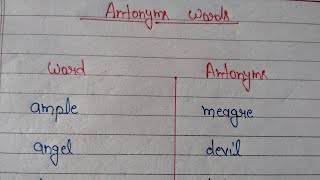 Antonyms Words
Word Antonyms
ample meagre
angel devil